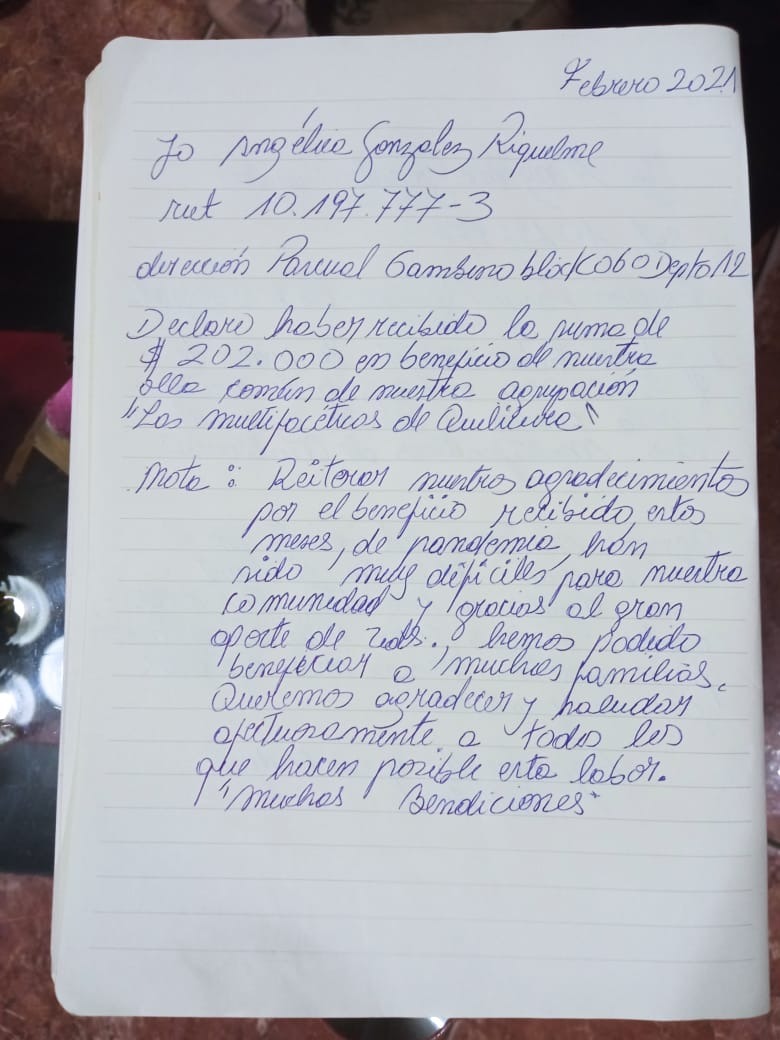 Febrero 2021
Yo Angélica Gonzalez Riquelme
rut 10.197.777-3
dirección Pascual Gambino block 060 Depto 12
Declaro haber recibido la suma de
$ 202.000 en beneficio de nuestra
olla común de nuestra agrupación
"Las multifacéticas de Quilicura"
Nota : Reiterar nuestros agradecimientos
por el beneficio recibido, estos
meses, de pandemia, hán
sido muy difíciles para nuestra
comunidad y gracias al gran
aporte de uds., hemos podido
beneficiar a muchas familias.
Queremos agradecer y saludar
afectuosamente a todos los
que hacen posible esta labor.
"Muchas Bendiciones"